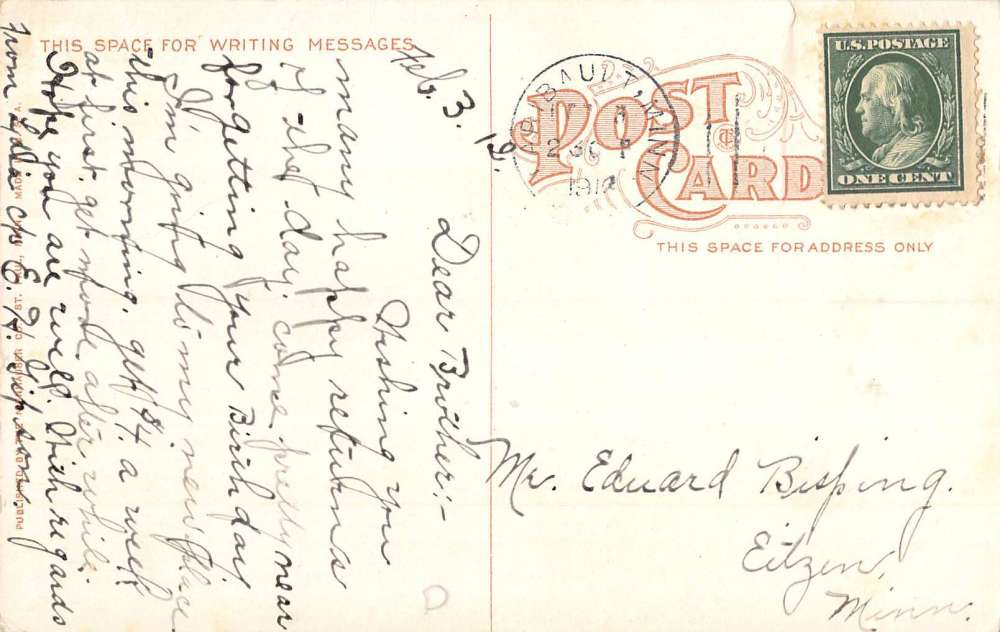 THIS SPACE FOR WRITING MESSAGES
Feb. 3. 12.
Dear Brother:-
Wishing you
many happy returns
of the day. come pretty near
forgetting your Birthday
I'm going to my new place
this morning. get $4. a week
at first, get more after while.
Hope you are well. With regards
from Lydia c/o E. H. Gipson.
POST CARD
THIS SPACE FOR ADDRESS ONLY
FARIBAULT, MINN
2 30 P
1912
U.S. POSTAGE
ONE CENT
Mr. Eduard Bisping.
Eitzen,
Minn.